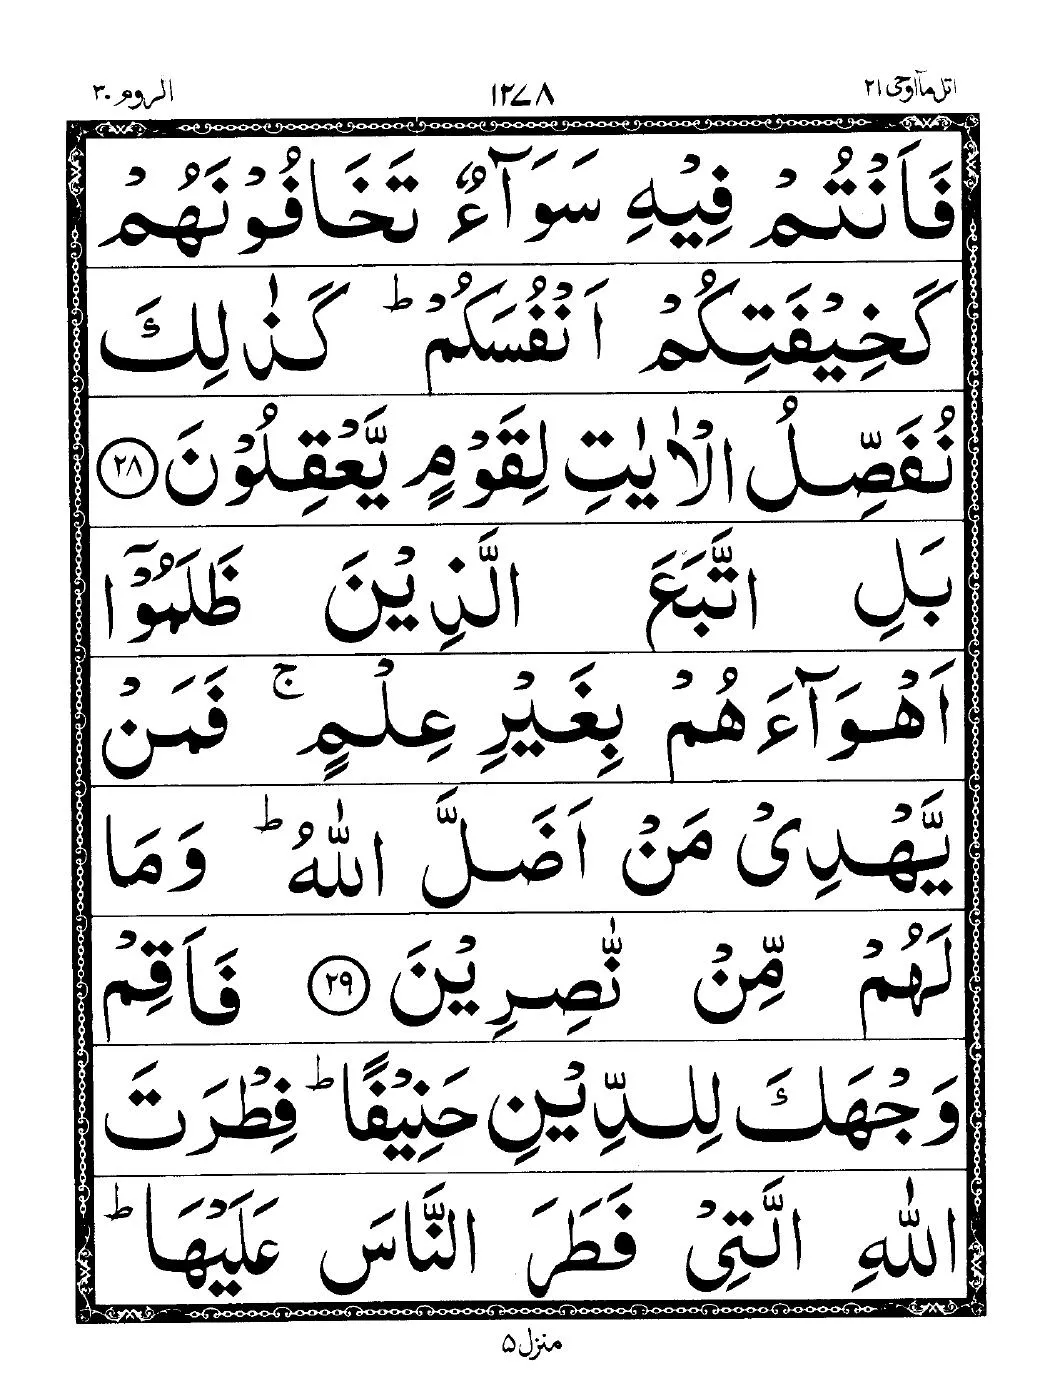 اتل مآ اوحی ۲۱ ۱۲۷۸ الروم ۳۰
فَاَنْتُمْ فِیْهِ سَوَآءٌ تَخَافُوْنَهُمْ
كَخِیْفَتِكُمْ اَنْفُسَكُمْ ؕ كَذٰلِكَ
نُفَصِّلُ الْاٰیٰتِ لِقَوْمٍ یَّعْقِلُوْنَ ۲۸
بَلِ اتَّبَعَ الَّذِیْنَ ظَلَمُوْۤا
اَهْوَآءَهُمْ بِغَیْرِ عِلْمٍ ۚ فَمَنْ
یَّهْدِیْ مَنْ اَضَلَّ اللّٰهُ ؕ وَمَا
لَهُمْ مِّنْ نّٰصِرِیْنَ ۲۹ فَاَقِمْ
وَجْهَكَ لِلدِّیْنِ حَنِیْفًا ؕ فِطْرَتَ
اللّٰهِ الَّتِیْ فَطَرَ النَّاسَ عَلَیْهَا ؕ
منزل ۵